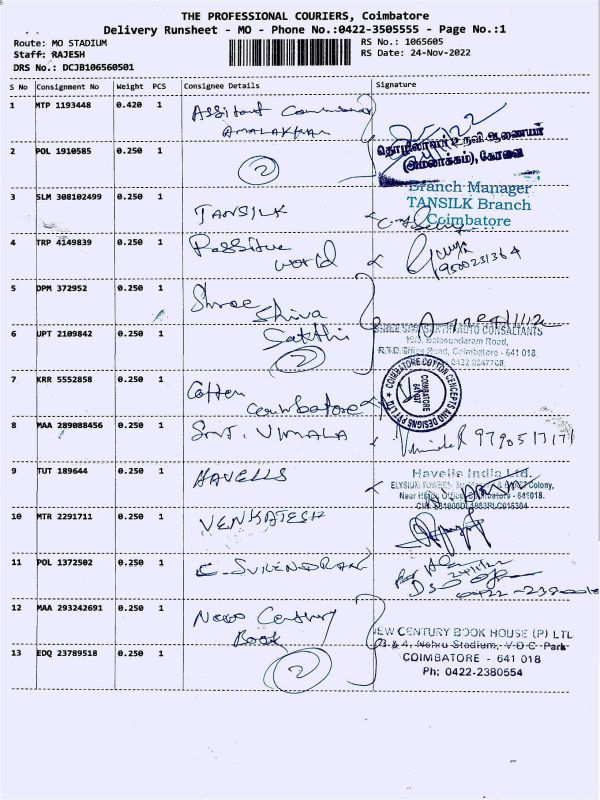 THE PROFESSIONAL COURIERS, Coimbatore
Delivery Runsheet - MO - Phone No.:0422-3505555 - Page No.:1
Route: MO STADIUM
RS No.: 1065605
Staff: RAJESH
RS Date: 24-Nov-2022
DRS No.: DCJB106560501
S No Consignment No Weight PCS Consignee Details Signature
1 MTP 1193448 0.420 1
AMALAKKAM
தொழிலாளர் உதவி ஆணையர்
2 POL 1910585 0.250 1
(அமலாக்கம்), கோவை
2
Branch Manager
3 SLM 308102499 0.250 1
TANSILK
TANSILK Branch
Coimbatore
4 TRP 4149839 0.250 1
Passitive
world
9500231364
5 DPM 372952 0.250 1
Shree
Shiva
Sakthi
6 UPT 2109842 0.250 1
2
AUTO CONSULTANTS
Balasundaram Road,
R.T.O. Office Road, Coimbatore - 641 018.
0422 2247708
7 KRR 5552858 0.250 1
Cotton
coimbatore
COIMBATORE COTTON CONCEPTS AND DESIGNS PVT LTD
COIMBATORE
8 MAA 289088456 0.250 1
Smt. VIMALA
9 TUT 189644 0.250 1
HAVELLS
Havells India Ltd.
ELYSIUM TOWERS
Colony,
Near Head Post Office, Coimbatore - 641018.
10 MTR 2291711 0.250 1
VENKATESH
11 POL 1372502 0.250 1
C. SURENDRAN
12 MAA 293242691 0.250 1
New Century
Book
NEW CENTURY BOOK HOUSE (P) LTD
13 EDQ 23789518 0.250 1
2
& 4, Nehru Stadium, V O C Park
COIMBATORE - 641 018
Ph: 0422-2380554